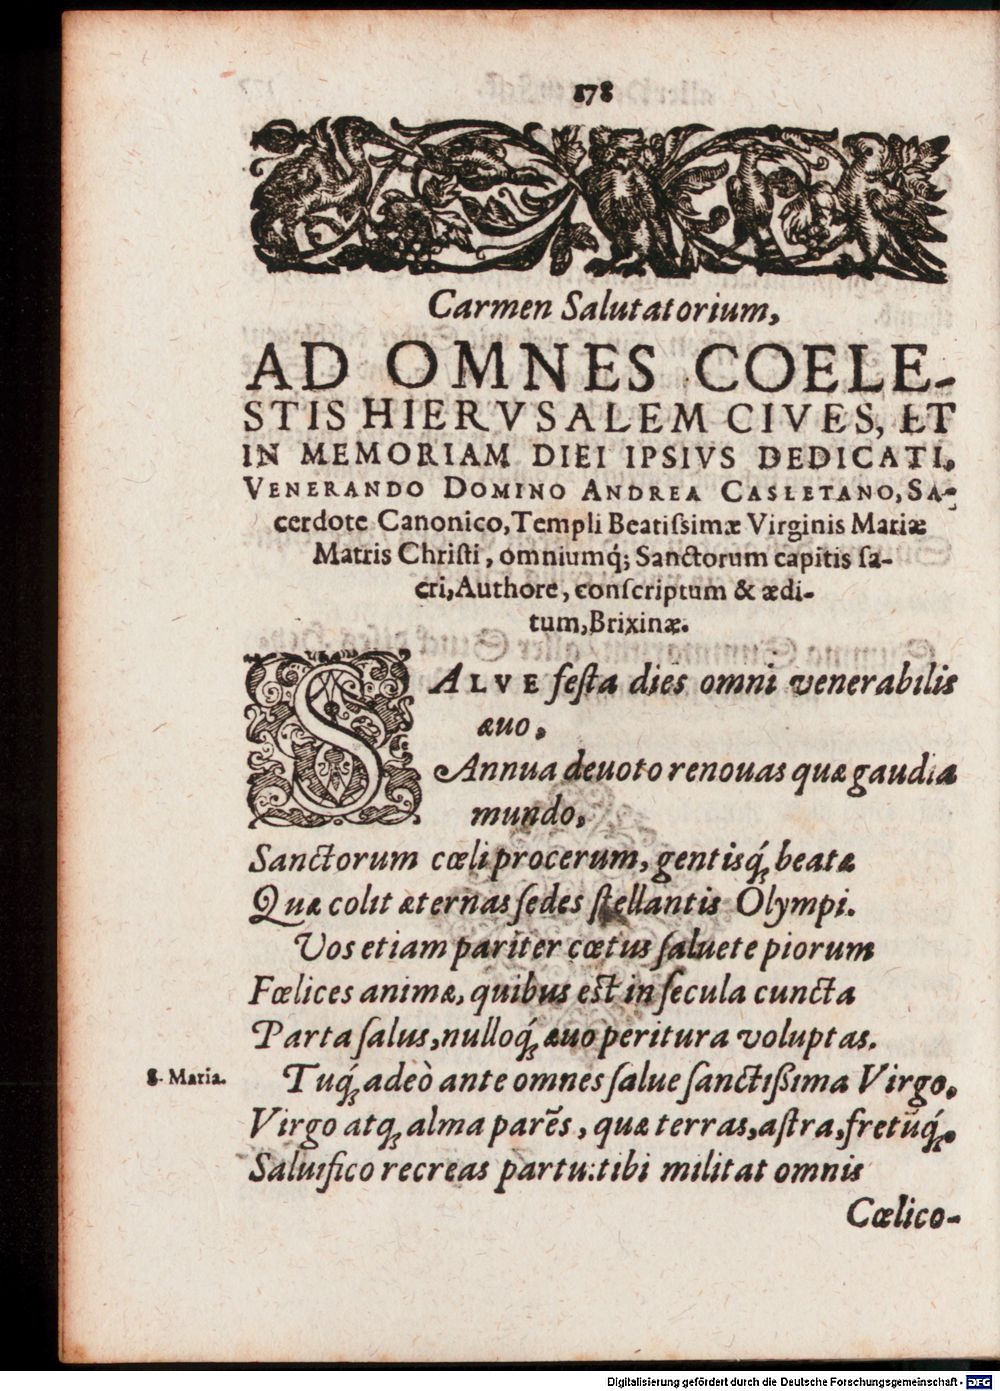 178
Carmen Salutatorium,
AD OMNES COELE-
STIS HIERVSALEM CIVES, ET
IN MEMORIAM DIEI IPSIVS DEDICATI,
VENERANDO DOMINO ANDREA CASLETANO, SA-
cerdote Canonico, Templi Beatiſsimæ Virginis Mariæ
Matris Chriſti, omniumq́; Sanctorum capitis ſa-
cri, Authore, conſcriptum & ædi-
tum, Brixinæ.
SALVE feſta dies omni venerabilis
æuo,
Annua deuoto renouas quæ gaudia
mundo,
Sanctorum cœli procerum, gentisq́; beatæ
Quæ colit æternas ſedes ſtellantis Olympi.
Vos etiam pariter cœtus ſaluete piorum
Fœlices animæ, quibus est in ſecula cuncta
Parta ſalus, nulloq́; æuo peritura voluptas.
S. Maria. Tuq́; adeò ante omnes ſalue ſanctißima Virgo,
Virgo atq; alma parẽs, quæ terras, aſtra, fretũq́;
Saluifico recreas partu: tibi militat omnis
Cœlico-
Digitalisierung gefördert durch die Deutsche Forschungsgemeinschaft - DFG